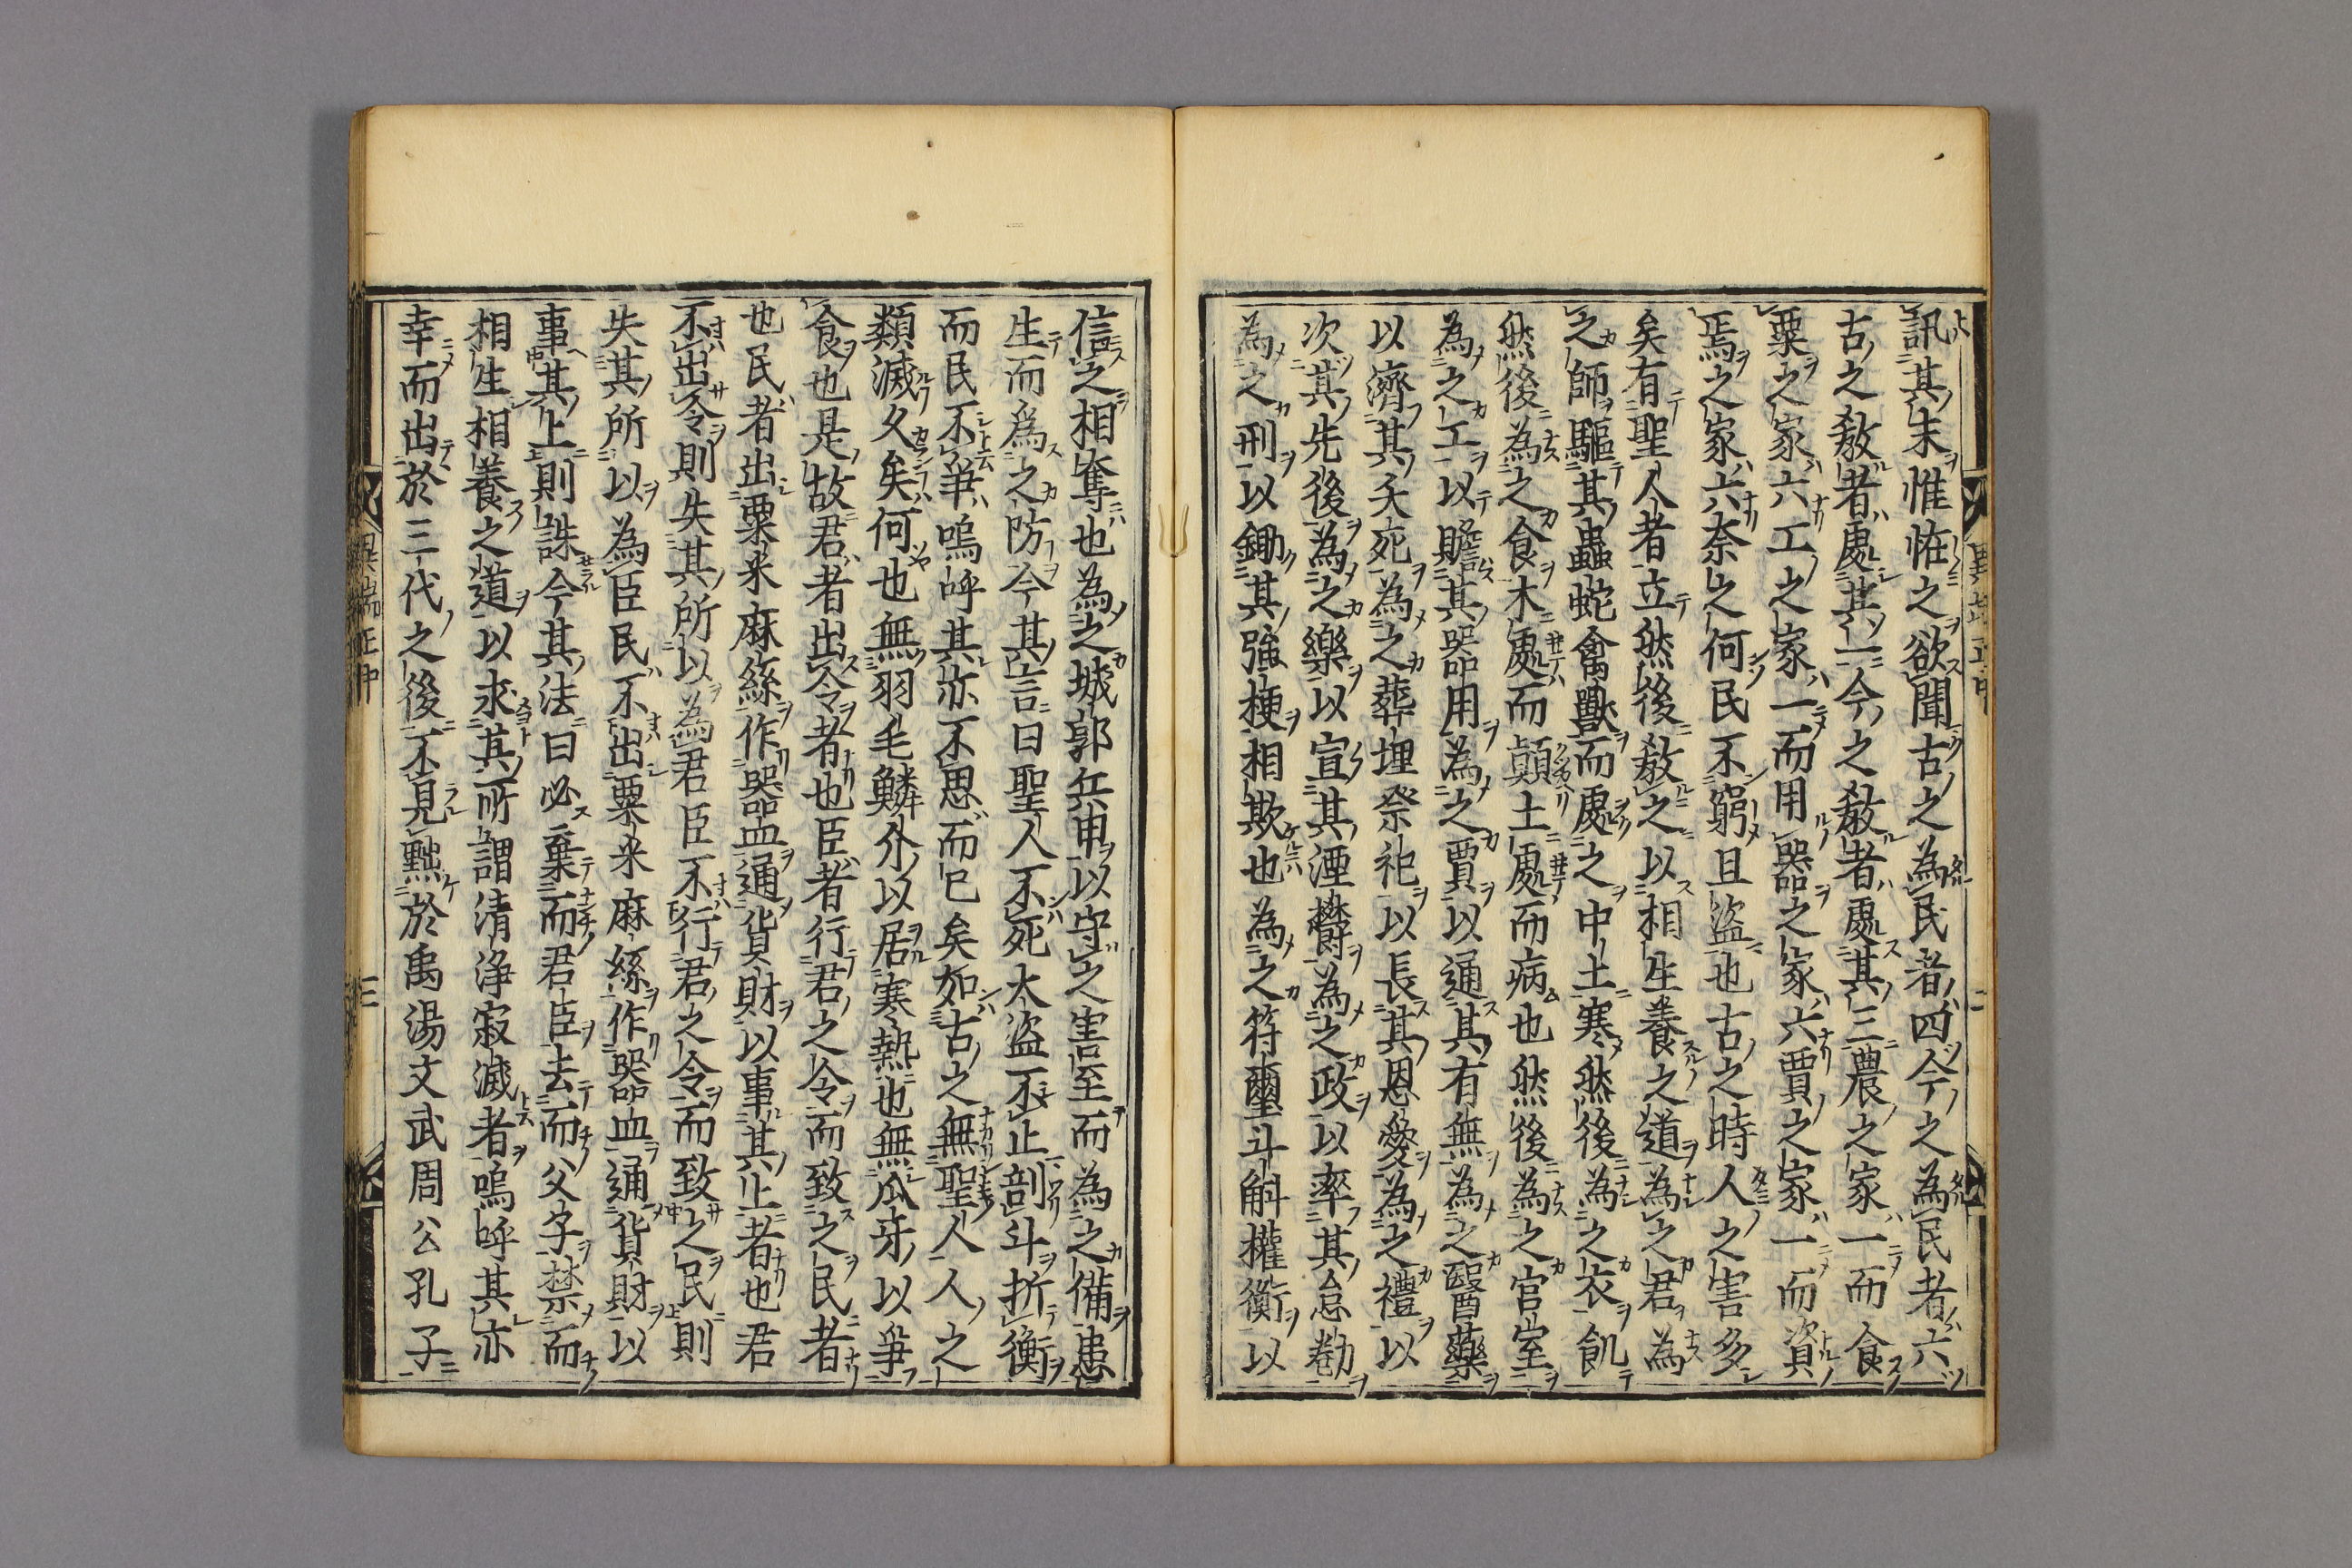 異端正中 二
訊其末惟恠之欲聞古之為民者四今之為民者六
古之教者處其一今之教者處其三農之家一而食
粟之家六工之家一而用器之家六賈之家一而資
焉之家六奈之何民不窮且盗也古之時人之害多
矣有聖人者立然後教之以相生養之道為之君為
之師驅其蟲蛇禽獸而處之中土寒然後為之衣飢
然後為之食木處而顛土處而病也然後為之宮室
為之工以贍其器用為之賈以通其有無為之醫藥
以濟其夭死為之葬埋祭祀以長其恩愛為之禮以
次其先後為之樂以宣其湮鬱為之政以率其怠勌
為之刑以鋤其強梗相欺也為之符璽斗斛權衡以
信之相奪也為之城郭兵甲以守之害至而為之備患
生而爲之防今其言曰聖人不死大盗不止剖斗折衡
而民不爭嗚呼其亦不思而已矣如古之無聖人人之
類滅久矣何也無羽毛鱗介以居寒熱也無爪牙以爭
食也是故君者出令者也臣者行君之令而致之民者
也民者出粟米麻絲作器皿通貨財以事其上者也君
不出令則失其所以為君臣不行君之令而致之民則
失其所以為臣民不出粟米麻絲作器皿通貨財以
事其上則誅今其法曰必棄而君臣去而父子禁而
相生相養之道以求其所謂清浄寂滅者嗚呼其亦
幸而出於三代之後不見黜於禹湯文武周公孔子
異端正中 三